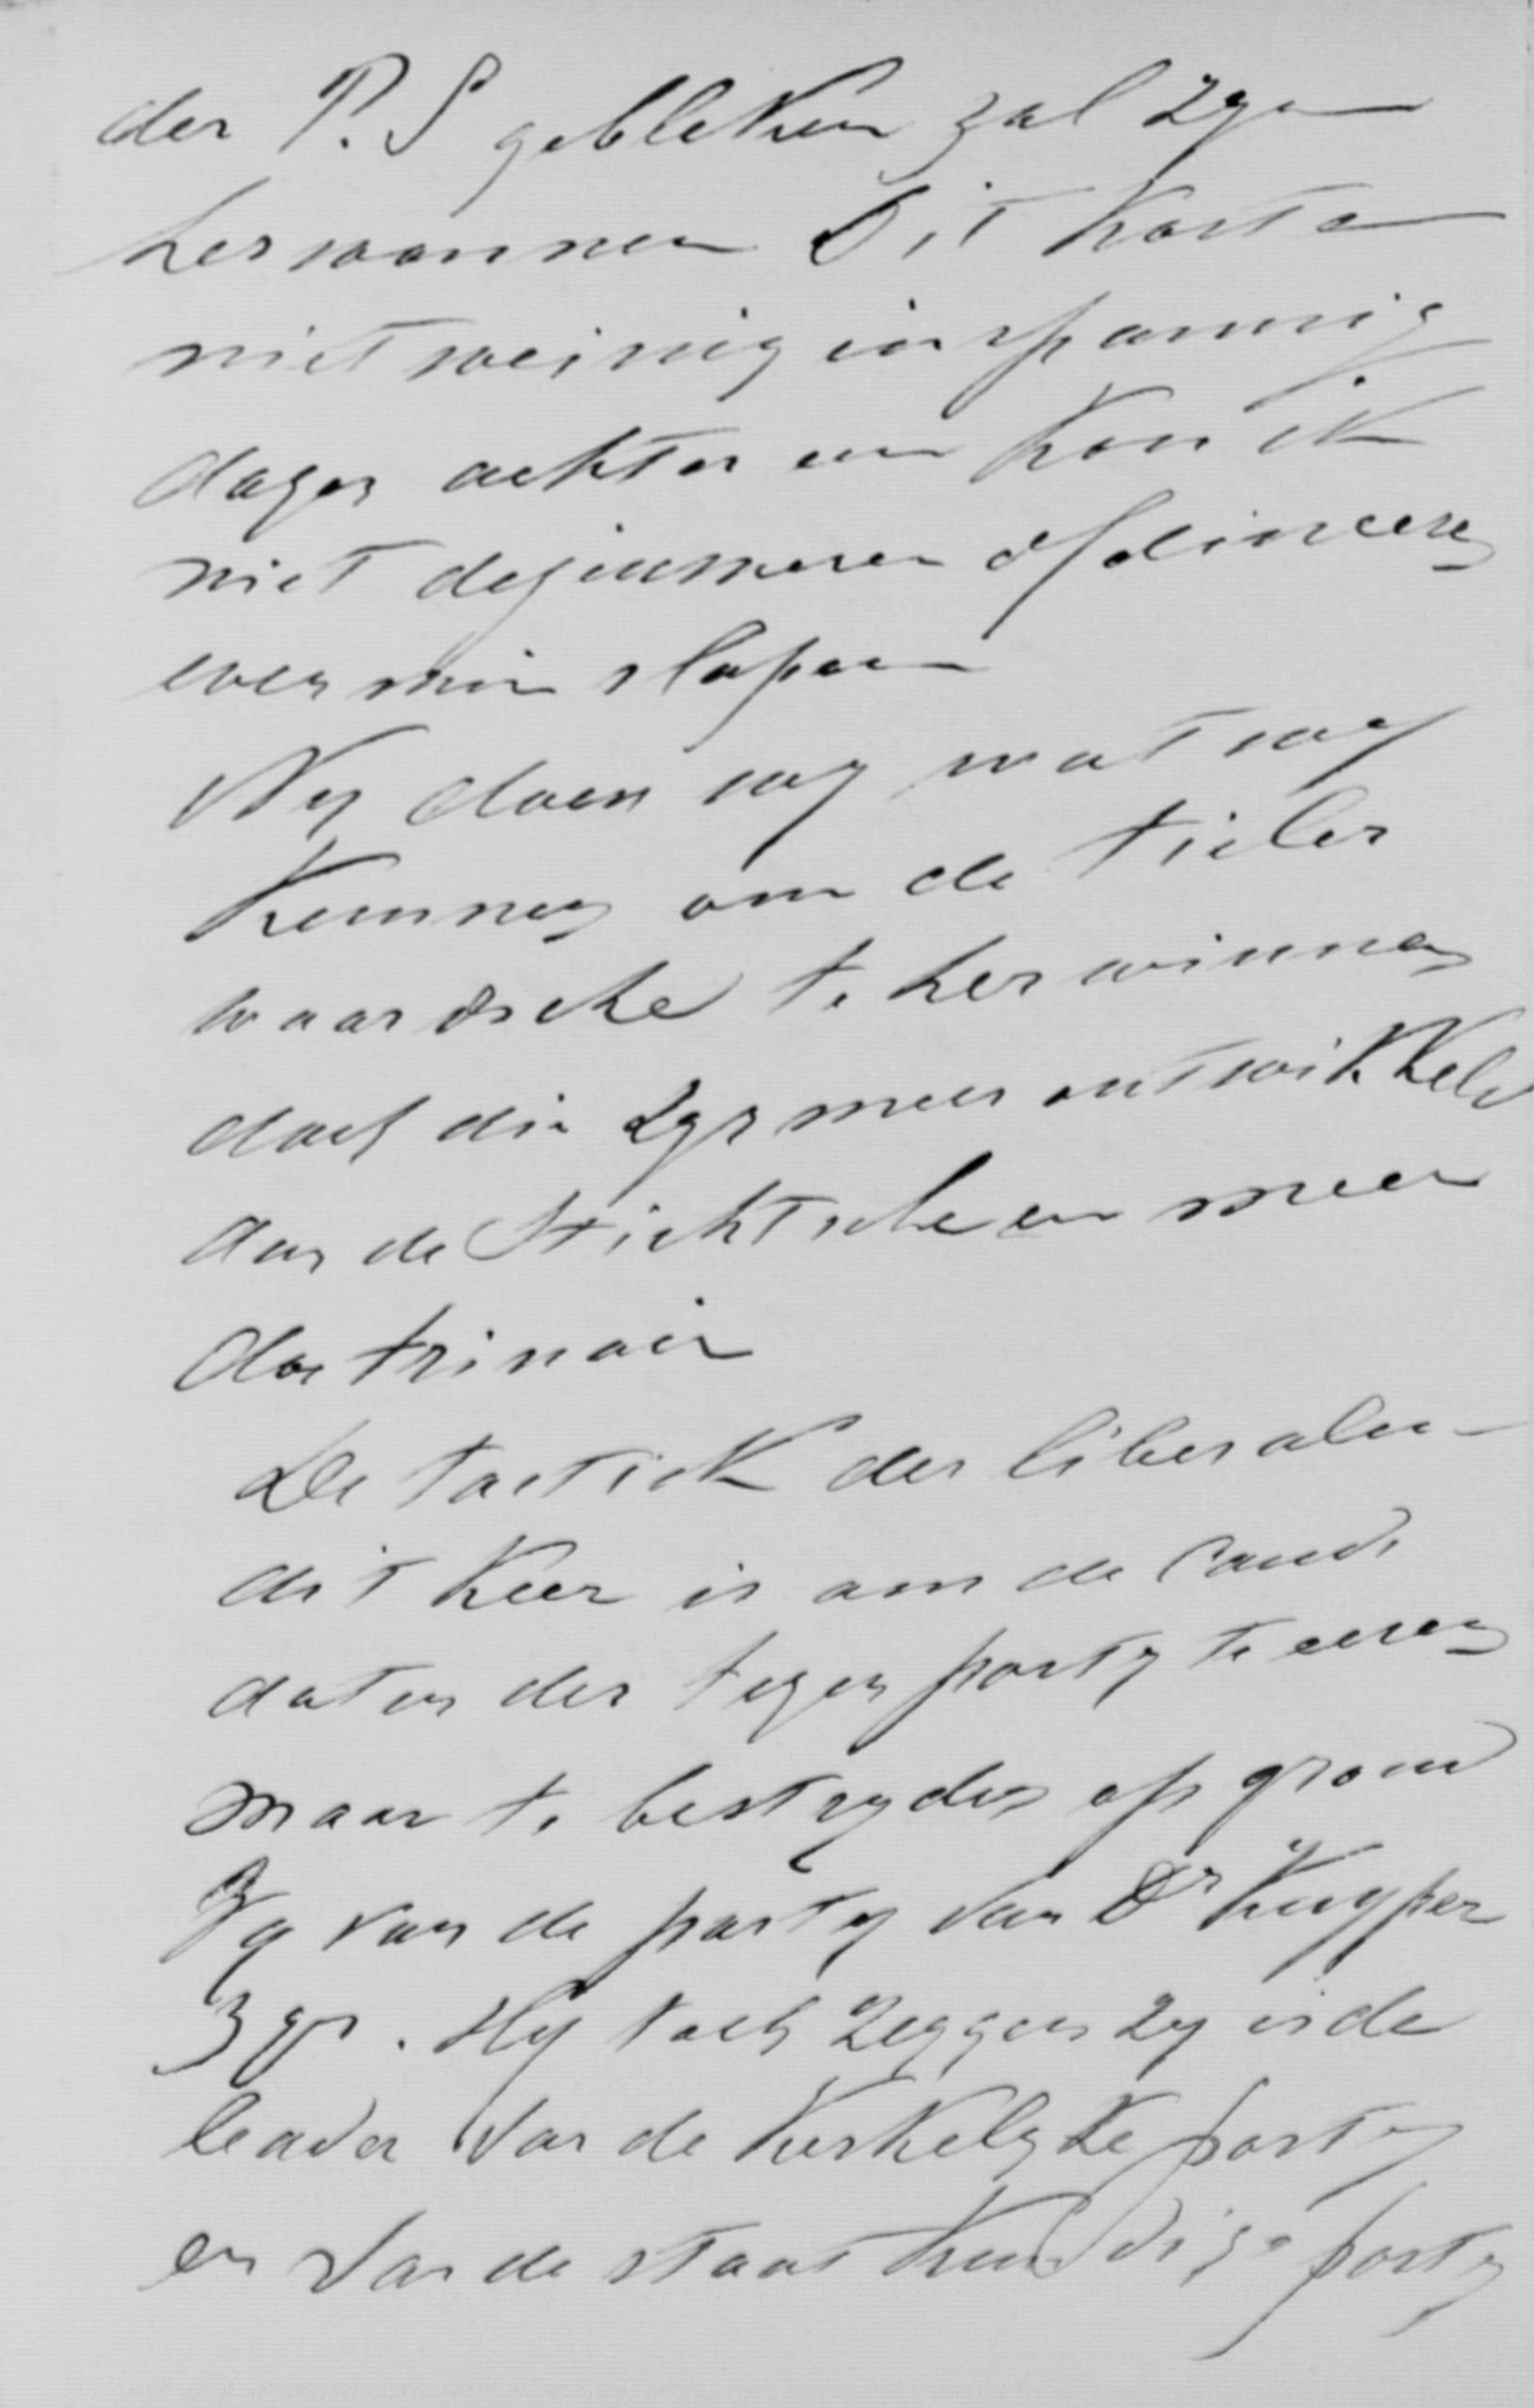 der P. S gebleken zal zyn
herwonnen Dit koste
niet weinig inspanning
dagen achter een kon ik
niet dejeuneren of dineeren
evenmin slapen
Wy doen wy wat wy
kunnen om de Tieler
waardsche te herwinnen
doch die zyn meer ontwikkeld
dan de Stichtsche en meer
doctrinair
De tactiek der liberalen
dit keer is om de candi
daten der tegenparty te eeren
maar te bestryden op grond
Zy van de party van Dr Kuyper
zyn. Hy toch zeggen zy is de
leader van de Kerkelyke party
en van de staatkundige party